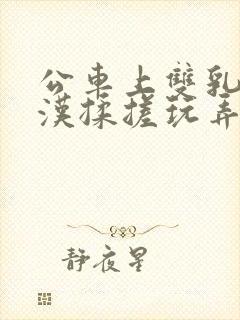 公車上雙乳
漢揉搓玩弄
静夜星